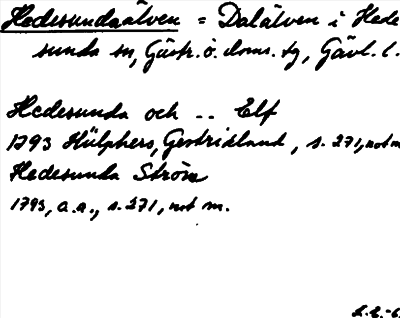 Hedesundaälven = Dalälven i Hede
sunda sn, Gästr. ö. doms. tg, Gävl. l.
Hedesunda och .. Elf
1793 Hülphers, Gestrikland, s. 271, not m
Hedesunda Ström
1793, a.a., s. 271, not m.